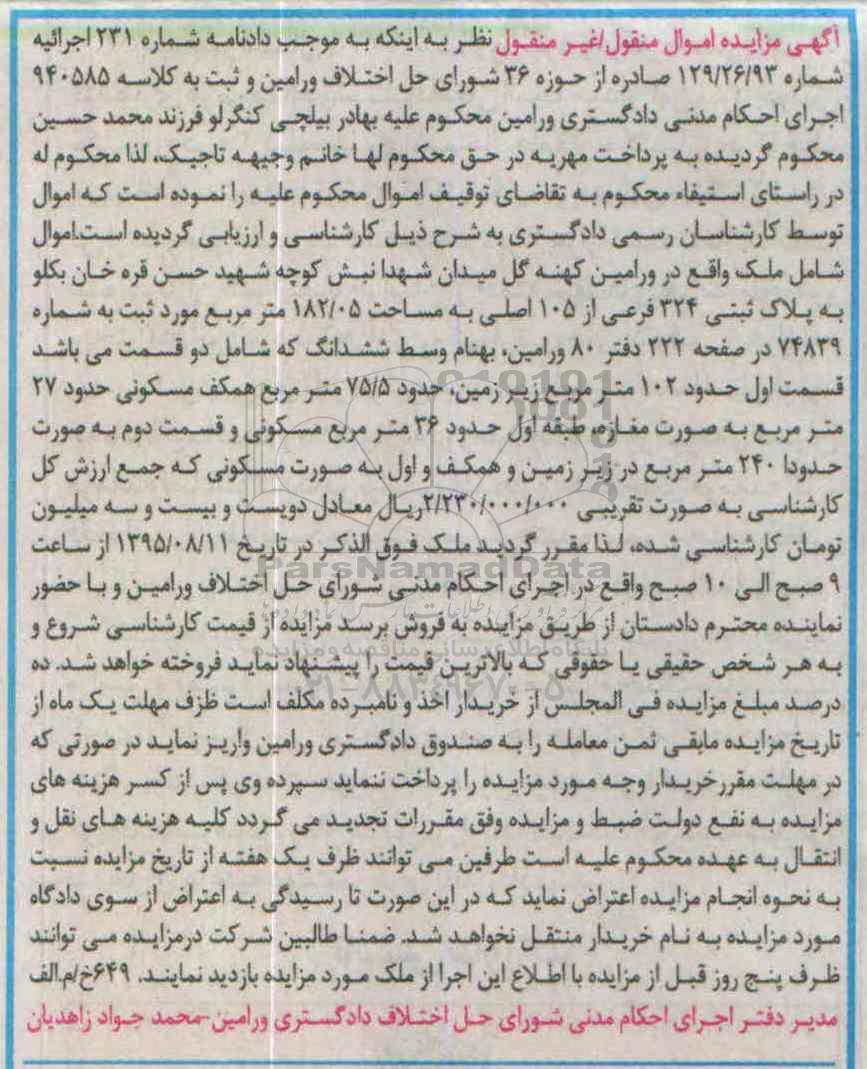 آگهی مزایده اموال منقول/غیر منقول نظر به اینکه به موجب دادنامه شماره ۲۳۱ اجرائیه
شماره ۱۲۹/۲۶/۹۳ صادره از حوزه ۳۶ شورای حل اختلاف ورامین و ثبت به کلاسه ۹۴۰۵۸۵
اجرای احکام مدنی دادگستری ورامین محکوم علیه بهادر بیلچی کنگرلو فرزند محمد حسین
محکوم گردیده به پرداخت مهریه در حق محکوم لها خانم وجیهه تاجیک، لذا محکوم له
در راستای استیفاء محکوم به تقاضای توقیف اموال محکوم علیه را نموده است که اموال
توسط کارشناسان رسمی دادگستری به شرح ذیل کارشناسی و ارزیابی گردیده است.اموال
شامل ملک واقع در ورامین کهنه گل میدان شهدا نبش کوچه شهید حسن قره خان بکلو
به پلاک ثبتی ۳۲۴ فرعی از ۱۰۵ اصلی به مساحت ۱۸۲/۰۵ متر مربع مورد ثبت به شماره
۷۴۸۳۹ در صفحه ۲۲۲ دفتر ۸۰ ورامین، بهنام وسط ششدانگ که شامل دو قسمت می باشد
قسمت اول حدود ۱۰۲ متر مربع زیر زمین، حدود ۷۵/۵ متر مربع همکف مسکونی حدود ۲۷
متر مربع به صورت مغازه، طبقه اول حدود ۳۶ متر مربع مسکونی و قسمت دوم به صورت
حدودا ۲۴۰ متر مربع در زیر زمین و همکف و اول به صورت مسکونی که جمع ارزش کل
کارشناسی به صورت تقریبی ۲/۲۳۰/۰۰۰/۰۰۰ریال معادل دویست و بیست و سه میلیون
تومان کارشناسی شده، لذا مقرر گردید ملک فوق الذکر در تاریخ ۱۳۹۵/۰۸/۱۱ از ساعت
ParsNamadData
۹ صبح الی ۱۰ صبح واقع در اجرای احکام مدنی شورای حل اختلاف ورامین و با حضور
نماینده محترم دادستان از طریق مزایده به فروش برسد مزایده از قیمت کارشناسی شروع و
پایگاه اطلاع رسانی مناقصه و مزایده
به هر شخص حقیقی یا حقوقی که بالاترین قیمت را پیشنهاد نماید فروخته خواهد شد. ده
۰۲۱-۸۸۳۴۹۶۷۰-۵
درصد مبلغ مزایده فی المجلس از خریدار اخذ و نامبرده مکلف است ظزف مهلت یک ماه از
تاریخ مزایده مابقی ثمن معامله را به صندوق دادگستری ورامین واریز نماید در صورتی که
در مهلت مقررخریدار وجه مورد مزایده را پرداخت ننماید سپرده وی پس از کسر هزینه های
مزایده به نفع دولت ضبط و مزایده وفق مقررات تجدید می گردد کلیه هزینه های نقل و
انتقال به عهده محکوم علیه است طرفین می توانند ظرف یک هفته از تاریخ مزایده نسبت
به نحوه انجام مزایده اعتراض نماید که در این صورت تا رسیدگی به اعتراض از سوی دادگاه
مورد مزایده به نام خریدار منتقل نخواهد شد. ضمنا طالبین شرکت درمزایده می توانند
ظرف پنج روز قبل از مزایده با اطلاع این اجرا از ملک مورد مزایده بازدید نمایند. ۶۴۹خ/م.الف
مدیر دفتر اجرای احکام مدنی شورای حل اختلاف دادگستری ورامین-محمد جواد زاهدیان